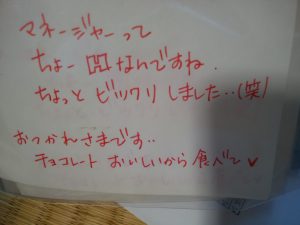 マネージャーって
ちょー凶なんですね.
ちょっと ビックリ しました‥(笑)
おつかれさまです‥
チョコレート おいしいから 食べて♥